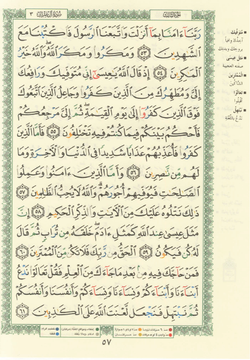 الجُزْءُ الثَّالِثُ
سُورَةُ آلِ عِمْرَانَ ٣
رَبَّنَآ ءَامَنَّا بِمَآ أَنزَلْتَ وَٱتَّبَعْنَا ٱلرَّسُولَ فَٱكْتُبْنَا مَعَ
ٱلشَّٰهِدِينَ ٥٣ وَمَكَرُوا۟ وَمَكَرَ ٱللَّهُ وَٱللَّهُ خَيْرُ
ٱلْمَٰكِرِينَ ٥٤ إِذْ قَالَ ٱللَّهُ يَٰعِيسَىٰٓ إِنِّى مُتَوَفِّيكَ وَرَافِعُكَ
إِلَىَّ وَمُطَهِّرُكَ مِنَ ٱلَّذِينَ كَفَرُوا۟ وَجَاعِلُ ٱلَّذِينَ ٱتَّبَعُوكَ
فَوْقَ ٱلَّذِينَ كَفَرُوٓا۟ إِلَىٰ يَوْمِ ٱلْقِيَٰمَةِ ثُمَّ إِلَىَّ مَرْجِعُكُمْ
فَأَحْكُمُ بَيْنَكُمْ فِيمَا كُنتُمْ فِيهِ تَخْتَلِفُونَ ٥٥ فَأَمَّا ٱلَّذِينَ
كَفَرُوا۟ فَأُعَذِّبُهُمْ عَذَابًا شَدِيدًا فِى ٱلدُّنْيَا وَٱلْءَاخِرَةِ وَمَا
لَهُم مِّن نَّٰصِرِينَ ٥٦ وَأَمَّا ٱلَّذِينَ ءَامَنُوا۟ وَعَمِلُوا۟
ٱلصَّٰلِحَٰتِ فَيُوَفِّيهِمْ أُجُورَهُمْ وَٱللَّهُ لَا يُحِبُّ ٱلظَّٰلِمِينَ ٥٧
ذَٰلِكَ نَتْلُوهُ عَلَيْكَ مِنَ ٱلْءَايَٰتِ وَٱلذِّكْرِ ٱلْحَكِيمِ ٥٨ إِنَّ
مَثَلَ عِيسَىٰ عِندَ ٱللَّهِ كَمَثَلِ ءَادَمَ خَلَقَهُۥ مِن تُرَابٍ ثُمَّ قَالَ
لَهُۥ كُن فَيَكُونُ ٥٩ ٱلْحَقُّ مِن رَّبِّكَ فَلَا تَكُن مِّنَ ٱلْمُمْتَرِينَ ٦٠
فَمَنْ حَآجَّكَ فِيهِ مِنۢ بَعْدِ مَا جَآءَكَ مِنَ ٱلْعِلْمِ فَقُلْ تَعَالَوْا۟ نَدْعُ
أَبْنَآءَنَا وَأَبْنَآءَكُمْ وَنِسَآءَنَا وَنِسَآءَكُمْ وَأَنفُسَنَا وَأَنفُسَكُمْ
ثُمَّ نَبْتَهِلْ فَنَجْعَل لَّعْنَتَ ٱللَّهِ عَلَى ٱلْكَٰذِبِينَ ٦١
٥٧